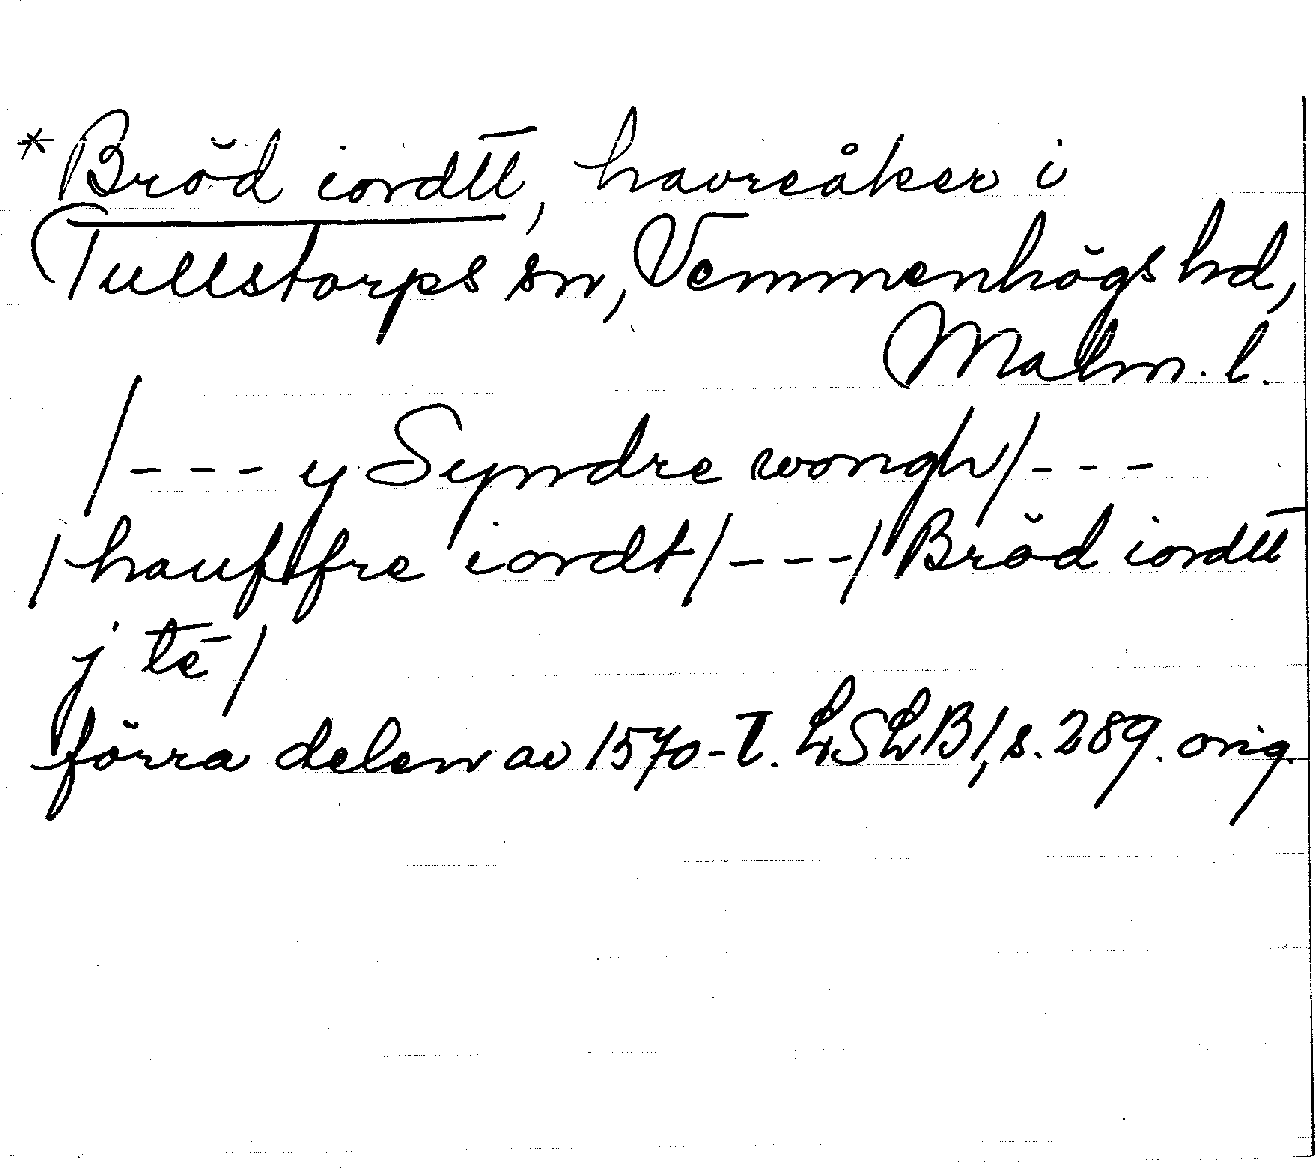 *Bröd iordtt, havreåker i
Tullstorps sn, Vemmenhögs hd,
Malm. l.
/--- y Syndre wongh/---
/hauffre iordt/---/Bröd iordtt
j tē/
förra delen av 1570-t. LSLB1, s. 289. orig.